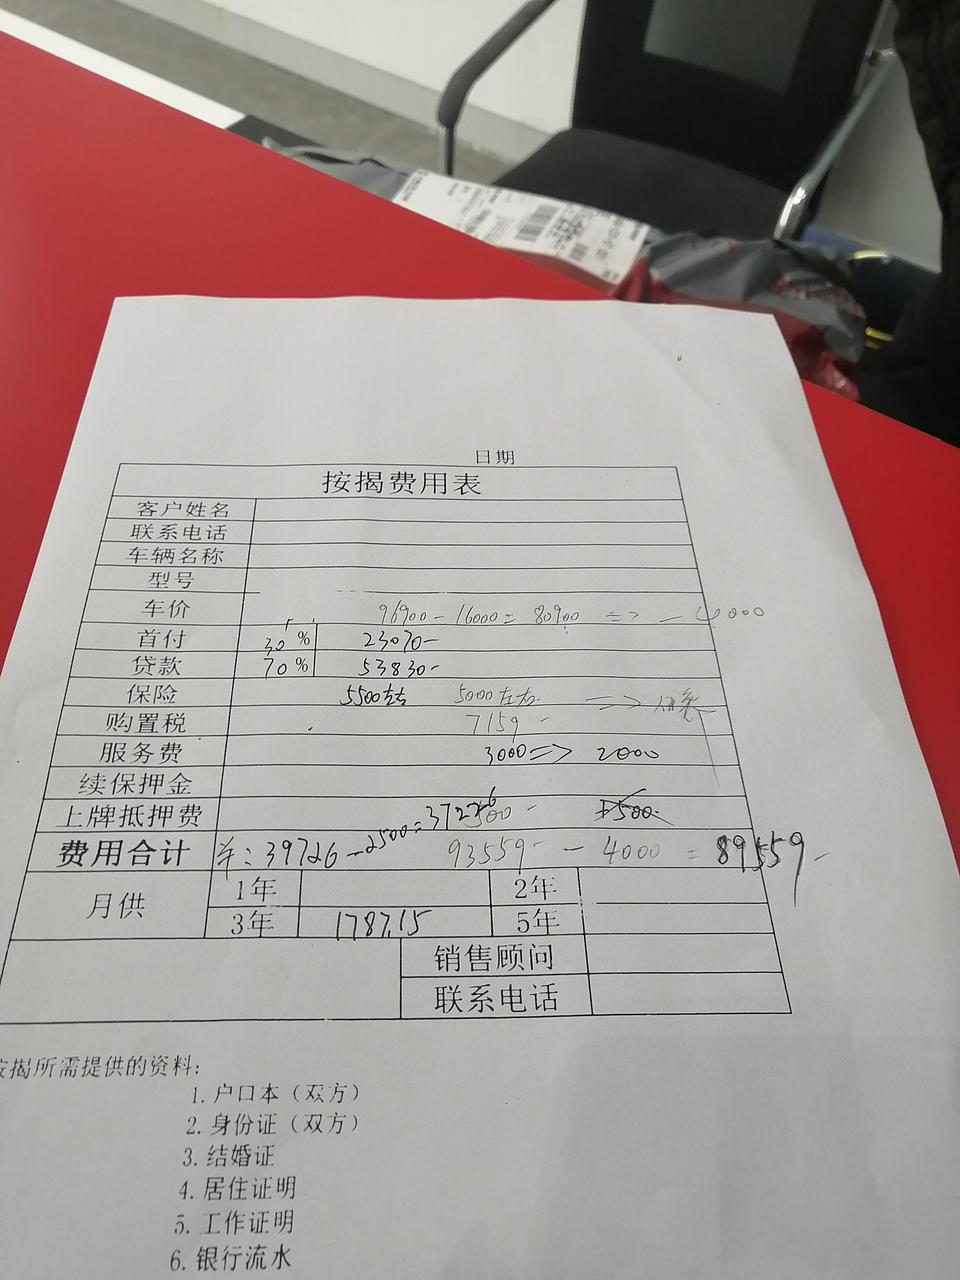 日期
按揭费用表
客户姓名
联系电话
车辆名称
型号
车价 96900-16000=80900 => -4000
首付 30% 23070-
贷款 70% 53830-
保险 5500左右 5000左右 =>
购置税 7159-
服务费 3000=> 2000
续保押金
上牌抵押费 500- 1500
费用合计 羊:39726-2500=37226 93559- -4000=89559-
月供 1年 2年
3年 1787.15 5年
销售顾问
联系电话
按揭所需提供的资料:
1.户口本（双方）
2.身份证（双方）
3.结婚证
4.居住证明
5.工作证明
6.银行流水